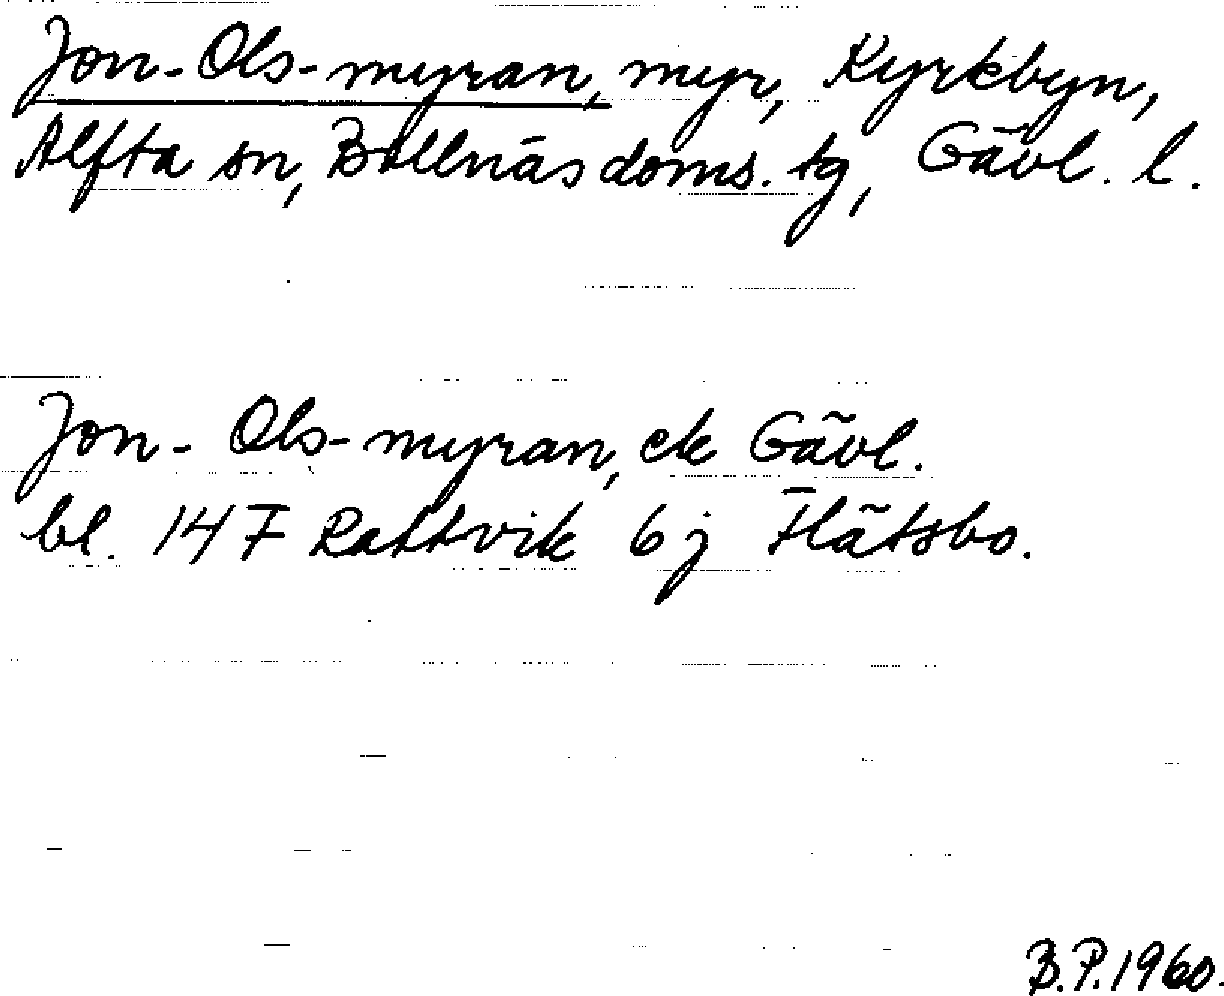 Jon-Ols-myran, myr, Kyrkbyn,
Alfta sn, Bollnäs doms. tg, Gävl. l.
Jon-Ols-myran, ek Gävl.
bl. 147 Rattvik 6j Flätsbo.
B.P. 1960.